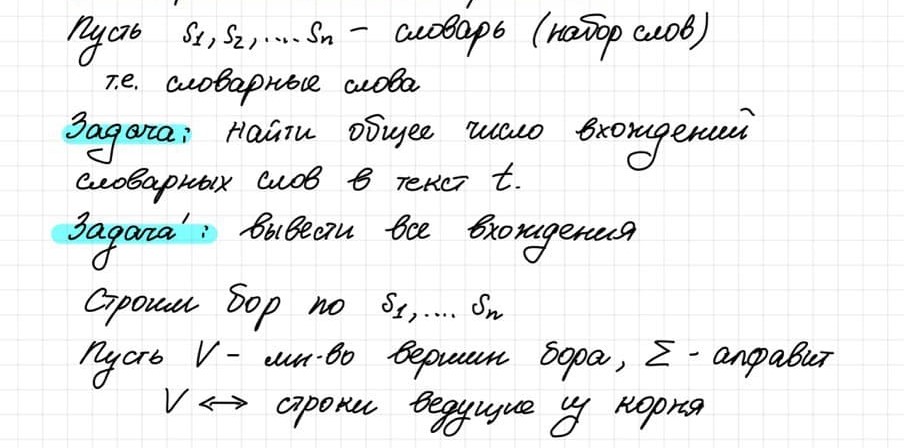 Пусть s₁, s₂, .... sₙ – словарь (набор слов)
т.е. словарные слова
Задача: найти общее число вхождений
словарных слов в текст t.
Задача': вывести все вхождения
Строим бор по s₁, .... sₙ
Пусть V – мн-во вершин бора, Σ - алфавит
V ↔ строки ведущие из корня